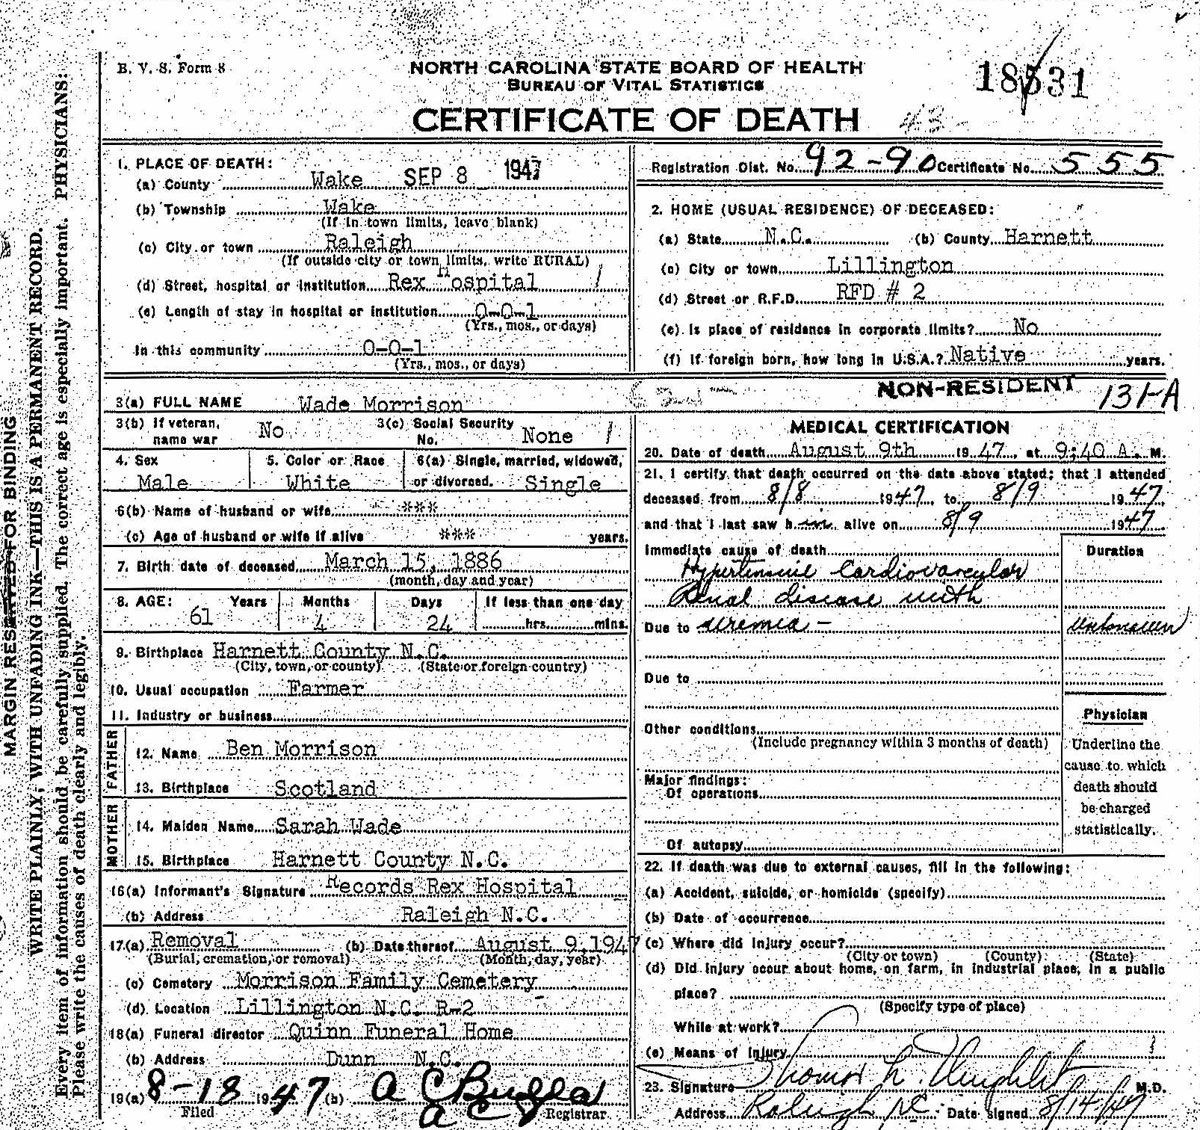 B. V. S. Form 8
NORTH CAROLINA STATE BOARD OF HEALTH
BUREAU OF VITAL STATISTICS
CERTIFICATE OF DEATH
18531
43
MARGIN RESERVED FOR BINDING
WRITE PLAINLY, WITH UNFADING INK—THIS IS A PERMANENT RECORD.
Every item of information should be carefully supplied. The correct age is especially important. PHYSICIANS:
Please write the causes of death clearly and legibly.
1. PLACE OF DEATH:
(a) County Wake SEP 8 1947
(b) Township Wake
(If in town limits, leave blank)
(c) City or town Raleigh
(If outside city or town limits, write RURAL)
(d) Street, hospital or institution Rex Hospital /
(e) Length of stay in hospital or institution 0-0-1
(Yrs., mos., or days)
In this community 0-0-1
(Yrs., mos., or days)
Registration Dist. No. 92-90 Certificate No. 555
2. HOME (USUAL RESIDENCE) OF DECEASED: "
(a) State N.C. (b) County Harnett
(c) City or town Lillington
(d) Street or R.F.D. RFD # 2
(e) Is place of residence in corporate limits? No
(f) If foreign born, how long in U.S.A.? Native years.
NON-RESIDENT 131-A
3(a) FULL NAME Wade Morrison
3(b) If veteran, name war No 3(c) Social Security No. None /
4. Sex Male 5. Color or Race White 6(a) Single, married, widowed, or divorced. Single
6(b) Name of husband or wife ***
(c) Age of husband or wife if alive *** years.
7. Birth date of deceased March 15, 1886
(month, day and year)
8. AGE: Years 61 Months 4 Days 24 If less than one day hrs. mins.
9. Birthplace Harnett County N.C.
(City, town, or county) (State or foreign country)
10. Usual occupation Farmer
11. Industry or business
FATHER
12. Name Ben Morrison
13. Birthplace Scotland
MOTHER
14. Maiden Name Sarah Wade
15. Birthplace Harnett County N.C.
16(a) Informant's Signature Records Rex Hospital
(b) Address Raleigh N.C.
17(a) Removal (b) Date thereof August 9, 1947
(Burial, cremation, or removal) (Month, day, year)
(c) Cemetery Morrison Family Cemetery
(d) Location Lillington N.C. R-2
18(a) Funeral director Quinn Funeral Home
(b) Address Dunn N.C.
19(a) 8-18 1947 (b) A C
Filed Registrar
MEDICAL CERTIFICATION
20. Date of death August 9th 1947, at 9:40 A. M.
21. I certify that death occurred on the date above stated; that I attended
deceased from 8/8 1947 to 8/9 1947
and that I last saw him alive on 8/9 1947
Immediate cause of death Duration
Hypertensive Cardiovascular
Renal disease with
Due to uremia - unknown
Due to
Other conditions
(Include pregnancy within 3 months of death)
Major findings:
Of operations
Of autopsy
Physician
Underline the
cause to which
death should
be charged
statistically.
22. If death was due to external causes, fill in the following:
(a) Accident, suicide, or homicide (specify)
(b) Date of occurrence
(c) Where did injury occur?
(City or town) (County) (State)
(d) Did injury occur about home, on farm, in industrial place, in a public
place?
(Specify type of place)
While at work?
(e) Means of injury
23. Signature Thomas L M.D.
Address Raleigh NC. Date signed 8/14/47